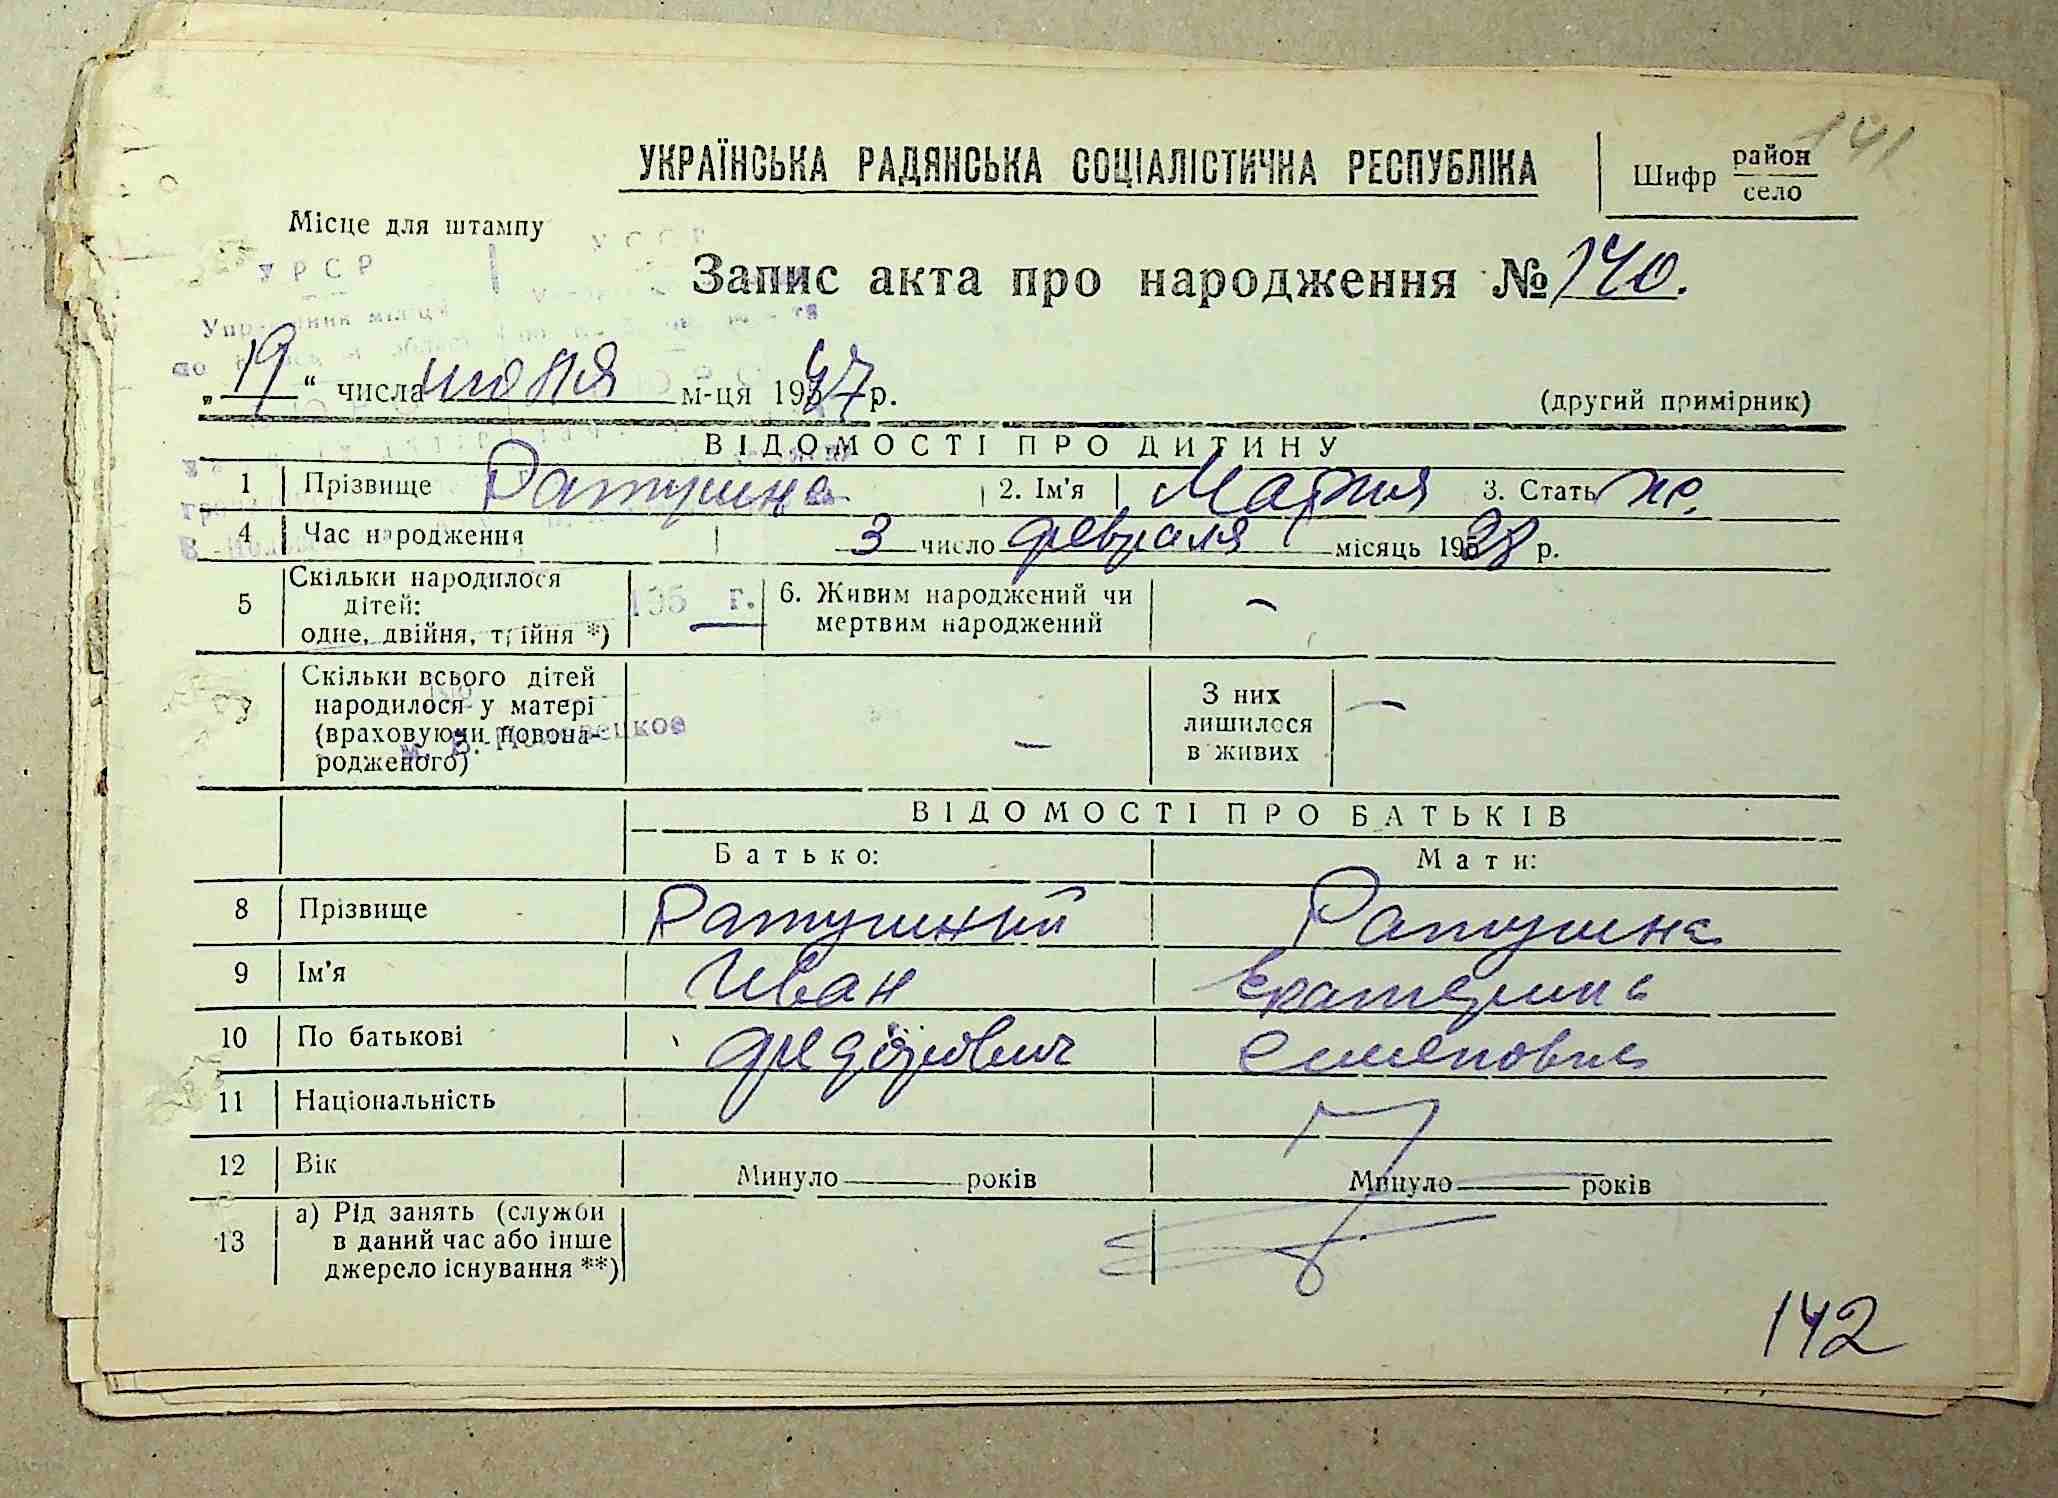 141
УКРАЇНСЬКА РАДЯНСЬКА СОЦІАЛІСТИЧНА РЕСПУБЛІКА
Шифр район
село
Місце для штампу
УРСР УССР
Запис акта про народження № 140.
„ 19 “ числа июня м-ця 1947 р.
(другий примірник)
ВІДОМОСТІ ПРО ДИТИНУ
1 Прізвище Ратушна 2. Ім'я Мария 3. Стать ж.
4 Час народження 3 число февраля місяць 1938 р.
5 Скільки народилося дітей: одне, двійня, трійня *) 195 г. — 6. Живим народжений чи мертвим народжений —
7 Скільки всього дітей народилося у матері (враховуючи новонародженого) — З них лишилося в живих —
ВІДОМОСТІ ПРО БАТЬКІВ
Батько: Мати:
8 Прізвище Ратушний Ратушна
9 Ім'я Иван Екатерина
10 По батькові Федорович Семеновна
11 Національність
12 Вік Минуло років Минуло років
13 а) Рід занять (служби в даний час або інше джерело існування **)
142